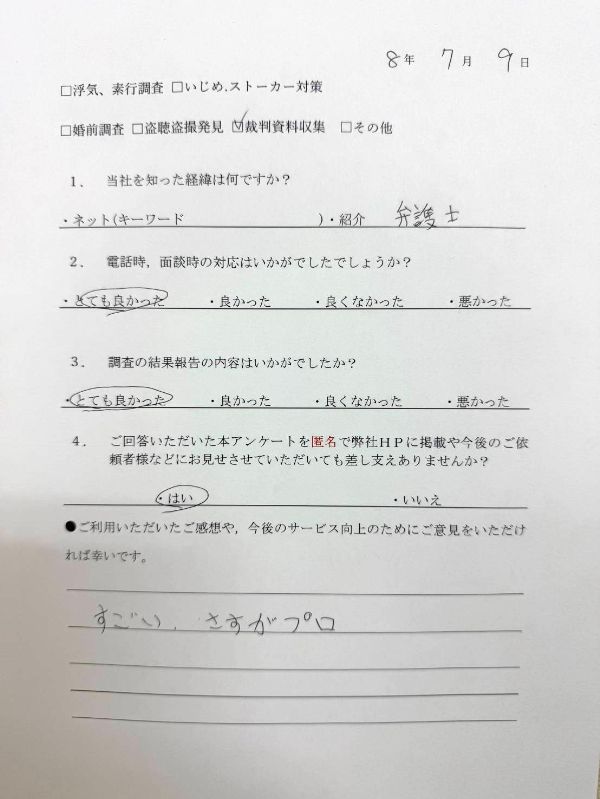 8年 7月 9日
□浮気、素行調査 □いじめ.ストーカー対策
□婚前調査 □盗聴盗撮発見 ☑裁判資料収集 □その他
1. 当社を知った経緯は何ですか?
・ネット(キーワード )・紹介 弁護士
2. 電話時,面談時の対応はいかがでしたでしょうか?
・とても良かった ・良かった ・良くなかった ・悪かった
3. 調査の結果報告の内容はいかがでしたか?
・とても良かった ・良かった ・良くなかった ・悪かった
4. ご回答いただいた本アンケートを匿名で弊社HPに掲載や今後のご依
頼者様などにお見せさせていただいても差し支えありませんか?
・はい ・いいえ
●ご利用いただいたご感想や,今後のサービス向上のためにご意見をいただけ
れば幸いです。
すごい、さすがプロ